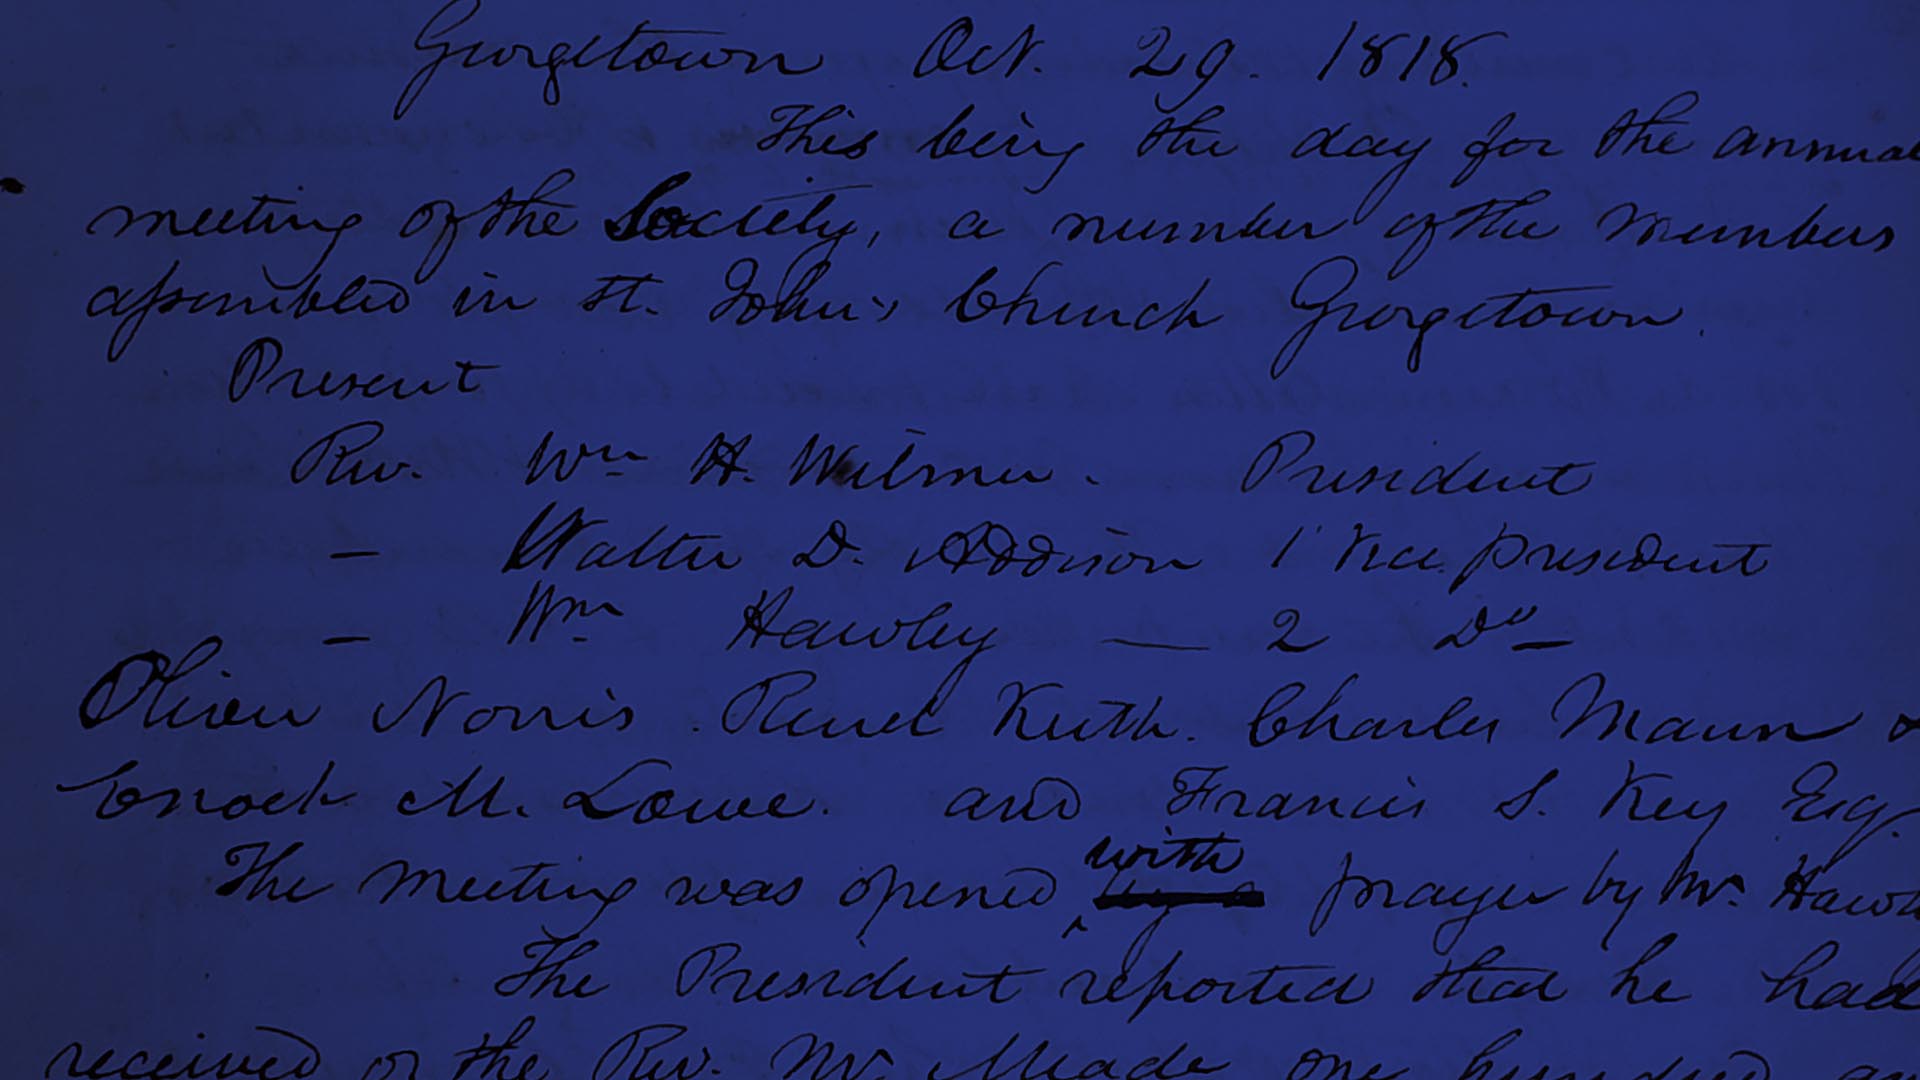 Georgetown Oct. 29. 1818.
This being the day for the annual
meeting of the Society, a number of the members
assembled in St. John's Church Georgetown.
Present
Rev. Wm H. Wilmer. President
— Walter D. Addison 1 Vice president
— Wm Hawley — 2 Do —
Oliver Norris. Reuel Keith. Charles Mann &
Enoch M. Lowe. and Francis S. Key Esq.
The meeting was opened with prayer by Mr. Hawley
The President reported that he had
received of the Rev. Mr. Meade one hundred